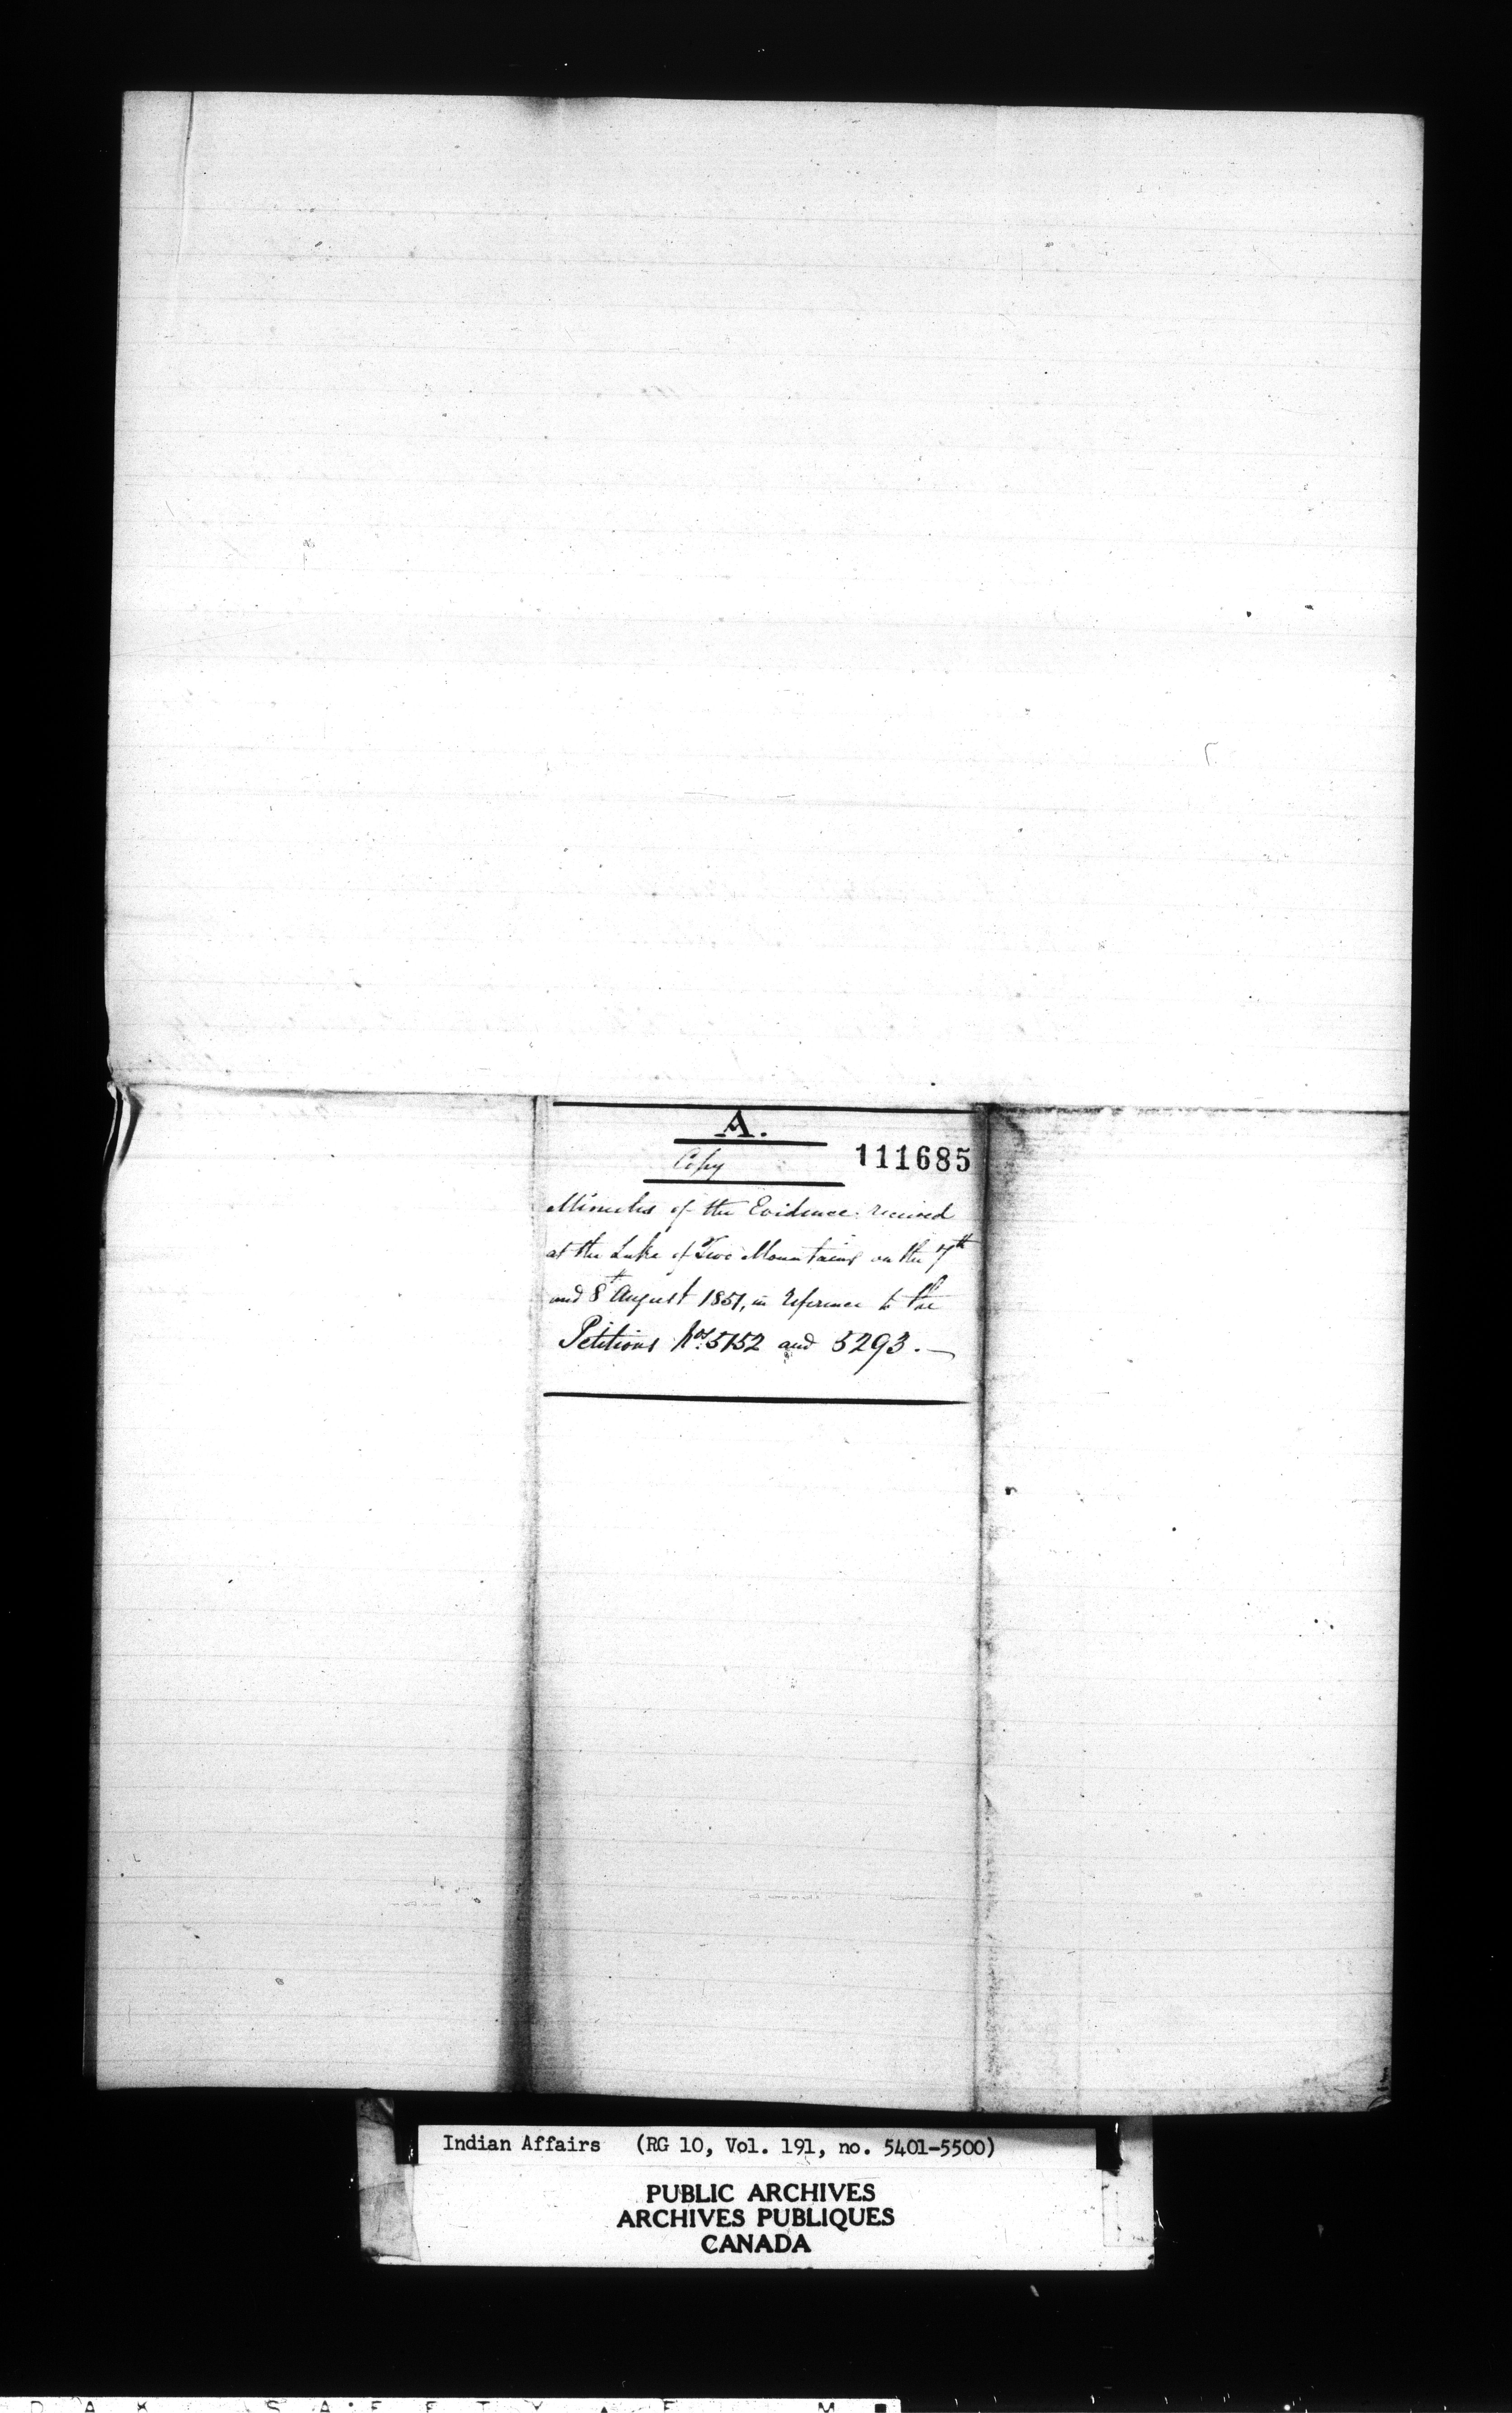 A.
Copy
111685
Minutes of the Evidence received
at the Lake of Two Mountains on the 7th
and 8th August 1851, in reference to the
Petitions Nos. 5152 and 5293. —
Indian Affairs (RG 10, Vol. 191, no. 5401-5500)
PUBLIC ARCHIVES
ARCHIVES PUBLIQUES
CANADA